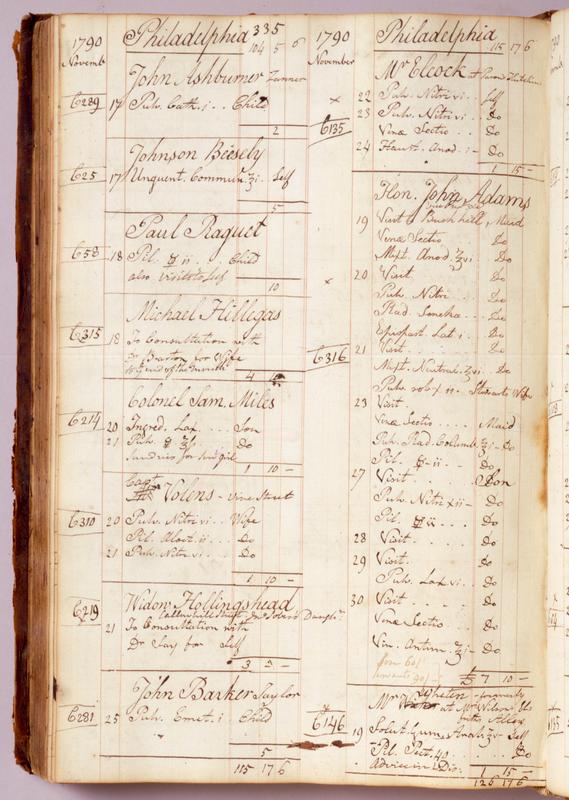 1790
Novemb
Philadelphia 335
104 5 6
John Ashburner Tanner
6289 17 Pulv. Cath. i. Child
2
Johnson Beesely
625 17 Unguent. Commun. ℥i. Self
5
Paul Raguet
658 18 Pil. ii Child
also visits to Self
10
Michael Hillegas
6315 18 To Consultation with
Dr Barton for Wife
to ye end of the month
4
Colonel Sam. Miles
6214 20 Ingred. Lax. Son
21 Pulv. Do
Sundries for
1 10 -
Capt Volens - Vine Street
6310 20 Pulv. Nitri vi. Wife
Pil. Aloet. ii. Do
21 Pulv. Nitri vi. Do
1 10 -
Widow Hollingshead
6219 Callowhill Street Daughtr
21 To Consultation with
Dr Say for Self
3 - -
John Barker Taylor
6281 25 Pulv. Emet. i Child
5
115 17 6
1790
November
Philadelphia
115 17 6
Mr Elcock at
× 22 Pulv. Nitri vi. Self
6135 23 Pulv. Nitri vi. Do
Vinæ Sectio Do
24 Haust. Anod. i - Do
1 15 -
Hon. John Adams
19 Visit to Bush hill, Maid
Vinæ Sectio Do
Mixt. Anod. ℥vi Do
× 20 Visit Do
Pulv. Nitri Do
Rad. Seneka Do
Epispast. Lat. i. Do
21 Visit Do
6316 Mixt. Neutral. ℥vi. Do
Pulv. rob. x ii - Stewards Wife
23 Visit
Vinæ Sectio Maid
Pulv. Rad. Columb. ℥i - Do
Pil. ii Do
27 Visit Son
Pulv. Nitri xii - Do
Pil. ii Do
28 Visit Do
29 Visit. Do
Pulv. Lax. vi. Do
30 Visit Do
Vinæ Sectio Do
Vin. Antim. ℥i - Do
7 10 -
Mr Whelen - formerly
at Mr Wilson's
6146 19 Solut. Gum. Arab. ℥v - Self
Pil. Pect. 40 Do
Advice
1 15 -
126 17 6